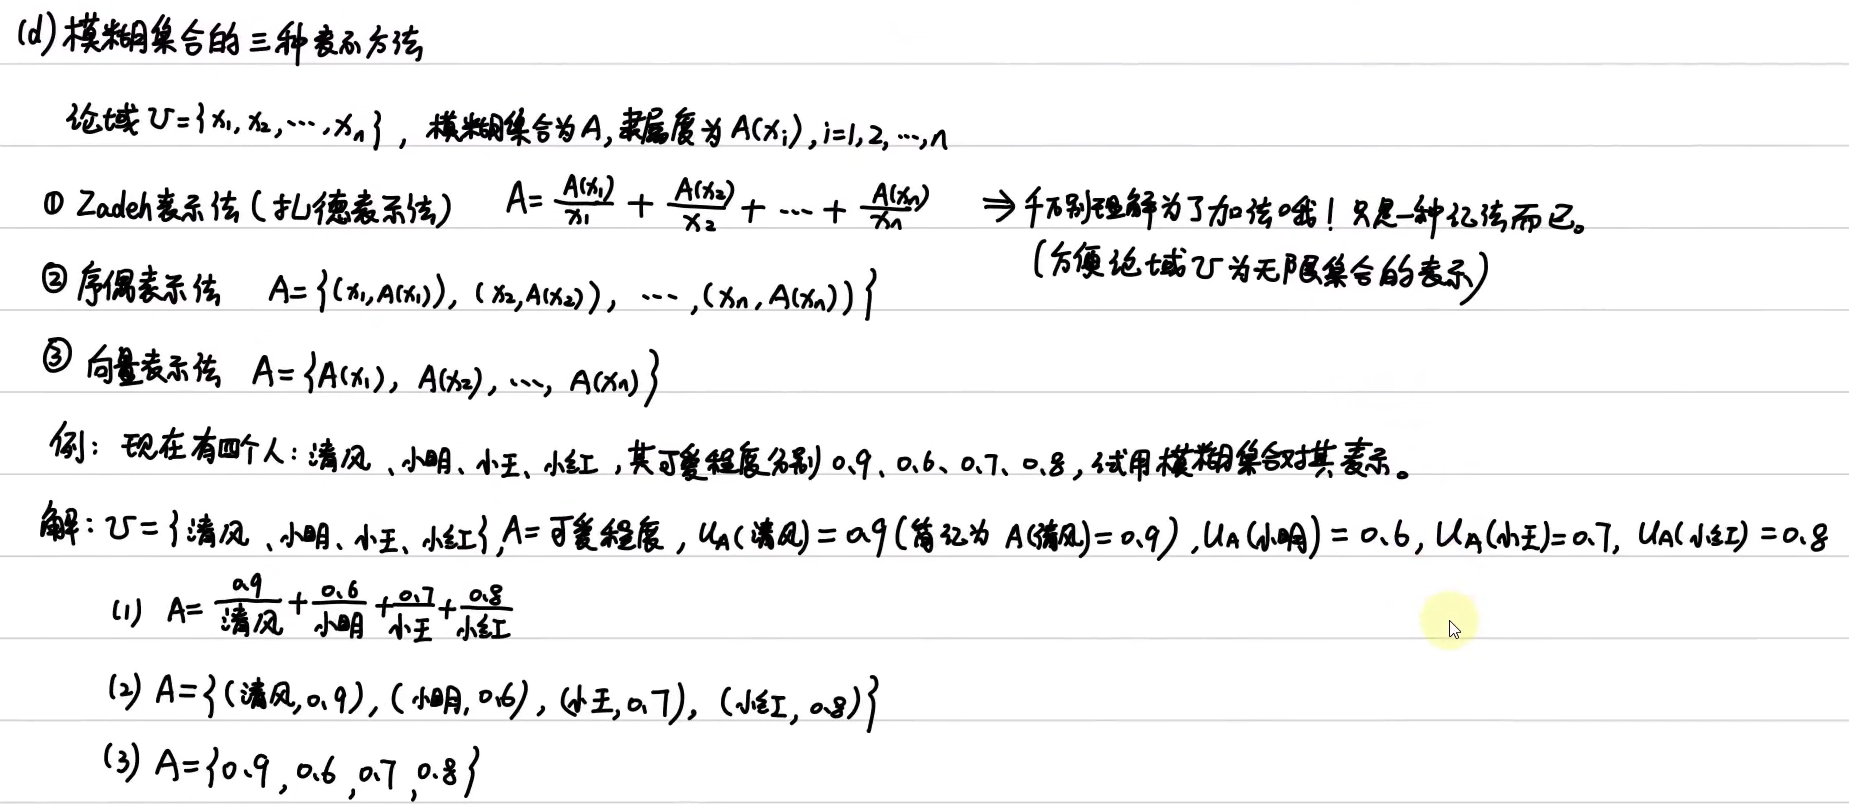 (d) 模糊集合的三种表示方法
论域 U={x₁, x₂, ⋯, xₙ}, 模糊集合为A, 隶属度为 A(xᵢ), i=1,2,⋯,n
① Zadeh表示法(扎德表示法) A= A(x₁)/x₁ + A(x₂)/x₂ + ⋯ + A(xₙ)/xₙ ⇒ 千万别理解为了加法哦! 只是一种记法而已。
(方便论域U为无限集合的表示)
② 序偶表示法 A={(x₁,A(x₁)), (x₂,A(x₂)), ⋯, (xₙ,A(xₙ))}
③ 向量表示法 A={A(x₁), A(x₂), ⋯, A(xₙ)}
例: 现在有四个人: 清风、小明、小王、小红, 其可爱程度分别 0.9、0.6、0.7、0.8, 试用模糊集合对其表示。
解: U={清风、小明、小王、小红}, A=可爱程度, U_A(清风)=0.9(简记为 A(清风)=0.9), U_A(小明)=0.6, U_A(小王)=0.7, U_A(小红)=0.8
(1) A= 0.9/清风 + 0.6/小明 + 0.7/小王 + 0.8/小红
(2) A={(清风,0.9), (小明,0.6), (小王,0.7), (小红,0.8)}
(3) A={0.9, 0.6, 0.7, 0.8}